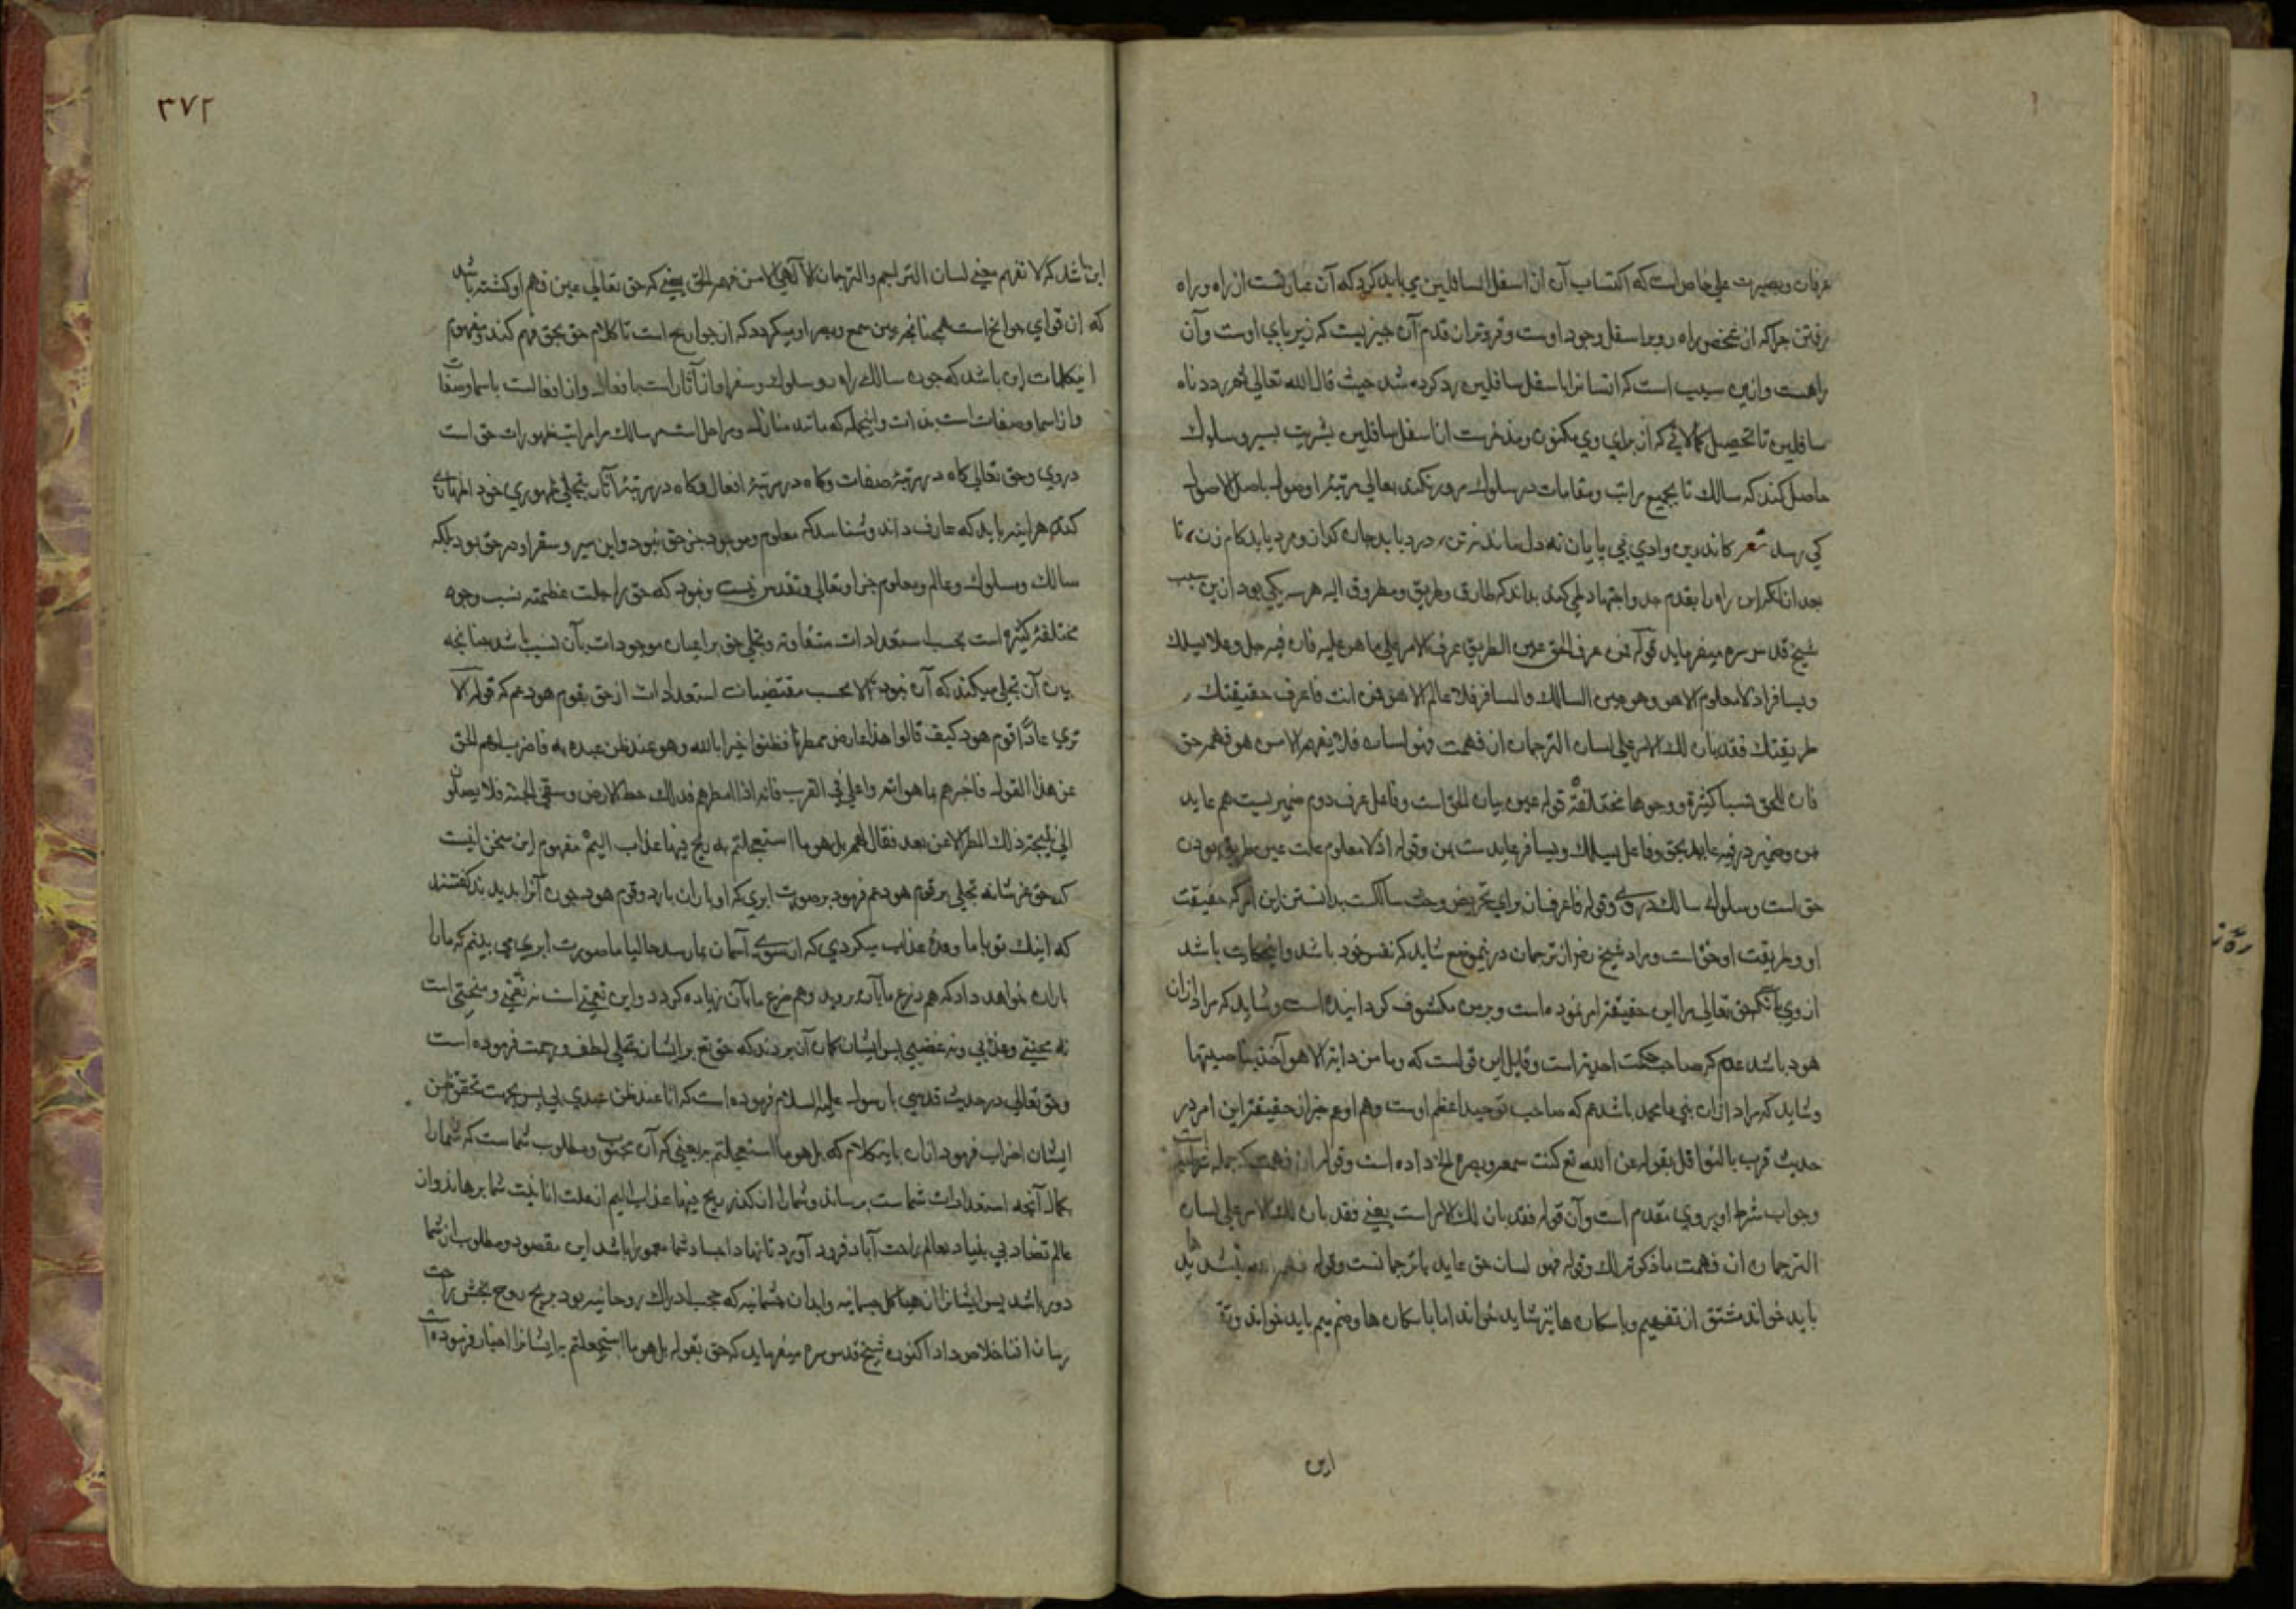 عرفان وبصیرت علی خاص است که اکتساب آن از اسفل السافلین می باید کرد که آن عبارتست از راه وراه
رفتن چرا که از شخص راه رو پر اسفل وجود اوست وفروتر از قدم آن چیزیست که زیر پای اوست وآن
راهست وازین سبب است که انسانرا باسفل سافلین رد کرده شد حیث قال الله تعالی ثم رددناه
سافلین تا تحصیل کمالاتی که از برای وی مکنون ومذخرست از اسفل سافلین بشریت بسیر وسلوک
حاصل کند که سالک تا بجمیع مراتب ومقامات در سلوک مرور نکند بعالی مرتبۀ اوصول باصل الاصول
کی رسد شعر کاندرین وادی بی پایان نه دل ماند نه تن، درد باید جان گداز ومرد باید کام زن، تا
بعد از آنکه این راه را بقدم جد واجتهاد طی کند بداند که طارق وطریق ومطروق الیه هر سه یکی بود ازین سبب
شیخ قدس سره میفرماید قوله فمن عرف الحق عین الطریق عرف الامر علی ما هو علیه فان فیه جل وعلا یسلک
ویسافر اذ لا معلوم الا هو وهو عین السالک والمسافر فلا عالم الا هو فمن انت فاعرف حقیقتک و
طریقتک فقد بان لک الامر علی لسان الترجمان ان فهمت وهو لسان فلا یفهمه الا من هو فهمه حق
فان للحق نسبا کثیرة ووجوها مختلفة قوله عین بیان الحق است وفاعل عرف دوم ضمیریست هم عاید
من وضمیر در فیه عاید بحق وفاعل یسلک ویسافر عایدست بمن وقوله اذ لا معلوم علت عین طریق بودن
حق است وسلوک سالک در وی وقوله فاعرف از برای تحریض وحث سالکست بدانستن این امر که حقیقت
او وطریقت او حق است ومراد شیخ رض از ترجمان درینموضع شاید که نفس خود باشد واینحکایت باشد
از وی بآنکه حق تعالی مرا این حقیقة امر نموده است وبرین مکشوف گردانیده است وشاید که مراد ازان
هود باشد عم که صاحب حکمت احدیه است وقایل این قول است که وما من دابة الا هو آخذ بناصیتها
وشاید که مراد ازان نبی ما محمد باشد هم که صاحب توحید اعظم اوست وهم او عم خبر از حقیقة این امر در
حدیث قرب بالنوافل بقوله عن الله تع کنت سمعه وبصره الخ داده است وقوله ان فهمت جمله شرطیه است
وجواب شرط او بروی مقدم است وآن قوله فقد بان لک الامر است یعنی فقد بان لک الامر علی لسان
الترجمان ان فهمت ما ذکرته لک وقوله فهو لسان حق عاید بترجمانست وقوله فهمه بتشدید ها
باید خواند مشتق از تفهیم وباسکان ها نیز شاید خواند اما باسکان ها وضم میم باید خواند وتق
این
٣٧٢
این باشد که لا تفهم معنی لسان التراجم والترجمان الا الهی الا من فهمه الحق یعنی که حق تعالی عین فهم او گشته باشد
که از قوای جوانح است همچنانچه عین سمع وبصر او میگردد که از جوارح است تا کلام حق بحق فهم کند ومفهوم
اینکلمات این باشد که چون سالک راه رو سلوک وسفر او از آثار است بافعال واز افعالست باسما وصفات
واز اسما وصفات است بذات واینجمله که مانند منازل ومراحل است مر سالک را مراتب ظهورات حق است
در وی وحق تعالی گاه در مرتبۀ صفات وگاه در مرتبۀ افعال وگاه در مرتبۀ آثار بتجلی ظهوری خود اظهار
کند هراینه باید که عارف داند وشناسد که معلوم وموجود جز حق نبود واین سیر وسفر او در حق بود بلکه
سالک ومسلوک وعالم ومعلوم جز او تعالی وتقدس نیست ونبود که حق را جلت عظمته نسب وجوه
مختلفۀ کثیره است بحسب استعدادات متفاوته وتجلی حق بر اعیان موجودات بآن نسب باشد چنانچه
بیان آن تجلی میکند که آن نبود الا بحسب مقتضیات استعدادات از حق بقوم هود عم که قوله الا
تری عادًا قوم هود کیف قالوا هذا عارض ممطرنا فظنوا خیرا بالله وهو عند ظن عبده به فاضرب لهم الحق
عن هذا القول فاخبرهم بما هو اتم واعلی فی القرب فانه اذا امطرهم فذلک حظ الارض وسقی الحبة فلا یصلون
الی نتیجة ذلک المطر الا عن بعد فقال لهم بل هو ما استعجلتم به ریح فیها عذاب الیم مفهوم این سخن اینست
که حق عز شانه تجلی بر قوم هود عم فرمود بر صورت ابری که او باران بارد وقوم هود چون آنرا بدیدند گفتند
که اینک تو با ما وعدۀ عذاب میکردی که از سوی آسمان بما رسد حالیا ما صورت ابری می بینم که ما را
باران خواهد داد که هم زرع ما بآن روید وهم ضرع ما بآن زیاده گردد واین نعمتی است نه نقمتی ومنحتی است
نه محنتی وعذابی ونه غضبی پس ایشان گمان آن بردند که حق تع بر ایشان تجلی لطف ورحمت فرموده است
وحق تعالی در حدیث قدسی با رسول علیه السلام فرموده است که انا عند ظن عبدی بی پس بجهت تحقق ظن
ایشان اضراب فرمود ازان باینکلام که بل هو ما استعجلتم به یعنی که آن محبوب ومطلوب شماست که شما را
بکمال آنچه استعدادات شما ست برساند وشما را ان کند ریح فیها عذاب الیم از علت انانیت شما برهاند واز
عالم تضاد بی بنیاد بعالم راحت آباد فرود آورد تا نهاد اجساد شما معمور باشد این مقصود ومطلوب از شما
دور باشد پس ایشانرا از هیاکل جسمانیه وابدان جثمانیه که حجب ادراک روحانیه بود بریح روح بخش راحت
رسان افنا خلاص داد اکنون شیخ قدس سره میفرماید که حق بقوله بل هو ما استعجلتم به ایشانرا اخبار فرموده است